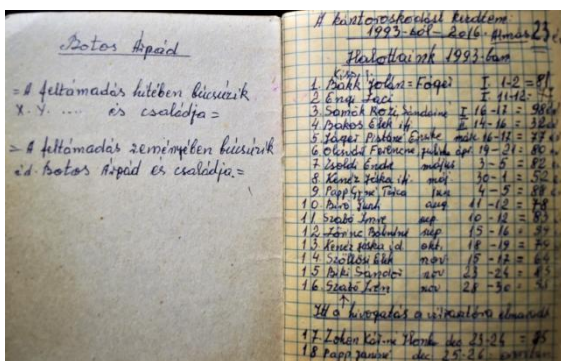 Botos Árpád
= A feltámadás hitében búcsúzik
X. Y. .... és családja =
= A feltámadás reményében búcsúzik
id. Botos Árpád és családja. =
A kántoroskodást kezdtem
1993-ból - 2016. Almás 23
Halottaink 1993-ban
1. Bakk Jolán = Fogei I. 1-2 = 81
2 Engi Laci I 11-12
3. Samók Rozi Sándorné I 16-17 = 98
4 Bakos Elek ifj. 14-16 = 32
5 márc. 16-17 = 77
6 Ferencné ápr. 19-21 = 80
7 Zsoldi Endre május 3-5 = 82
8 Kenéz Jóska ifj. máj. 30-1 = 52
9 Papp Gyné Terca jun 4-5 = 88
10 Biró aug. 11-12 = 78
11 Szabó Imre sep. 10-12 = 83
12 Lőrinc sep 15-16 =
13 Kenéz Jóska id. okt. 18-19 = 75
14 Szöllősi Elek nov. 15-17 = 64
15 Biki Sándor nov 23-24 = 83
16 Szabó Iren nov 28-30 =
Itt a hivogatás a virrasztóra elmaradt
17. Ilonka dec 23-24 = 85
18. Papp Janiné dec 25-26